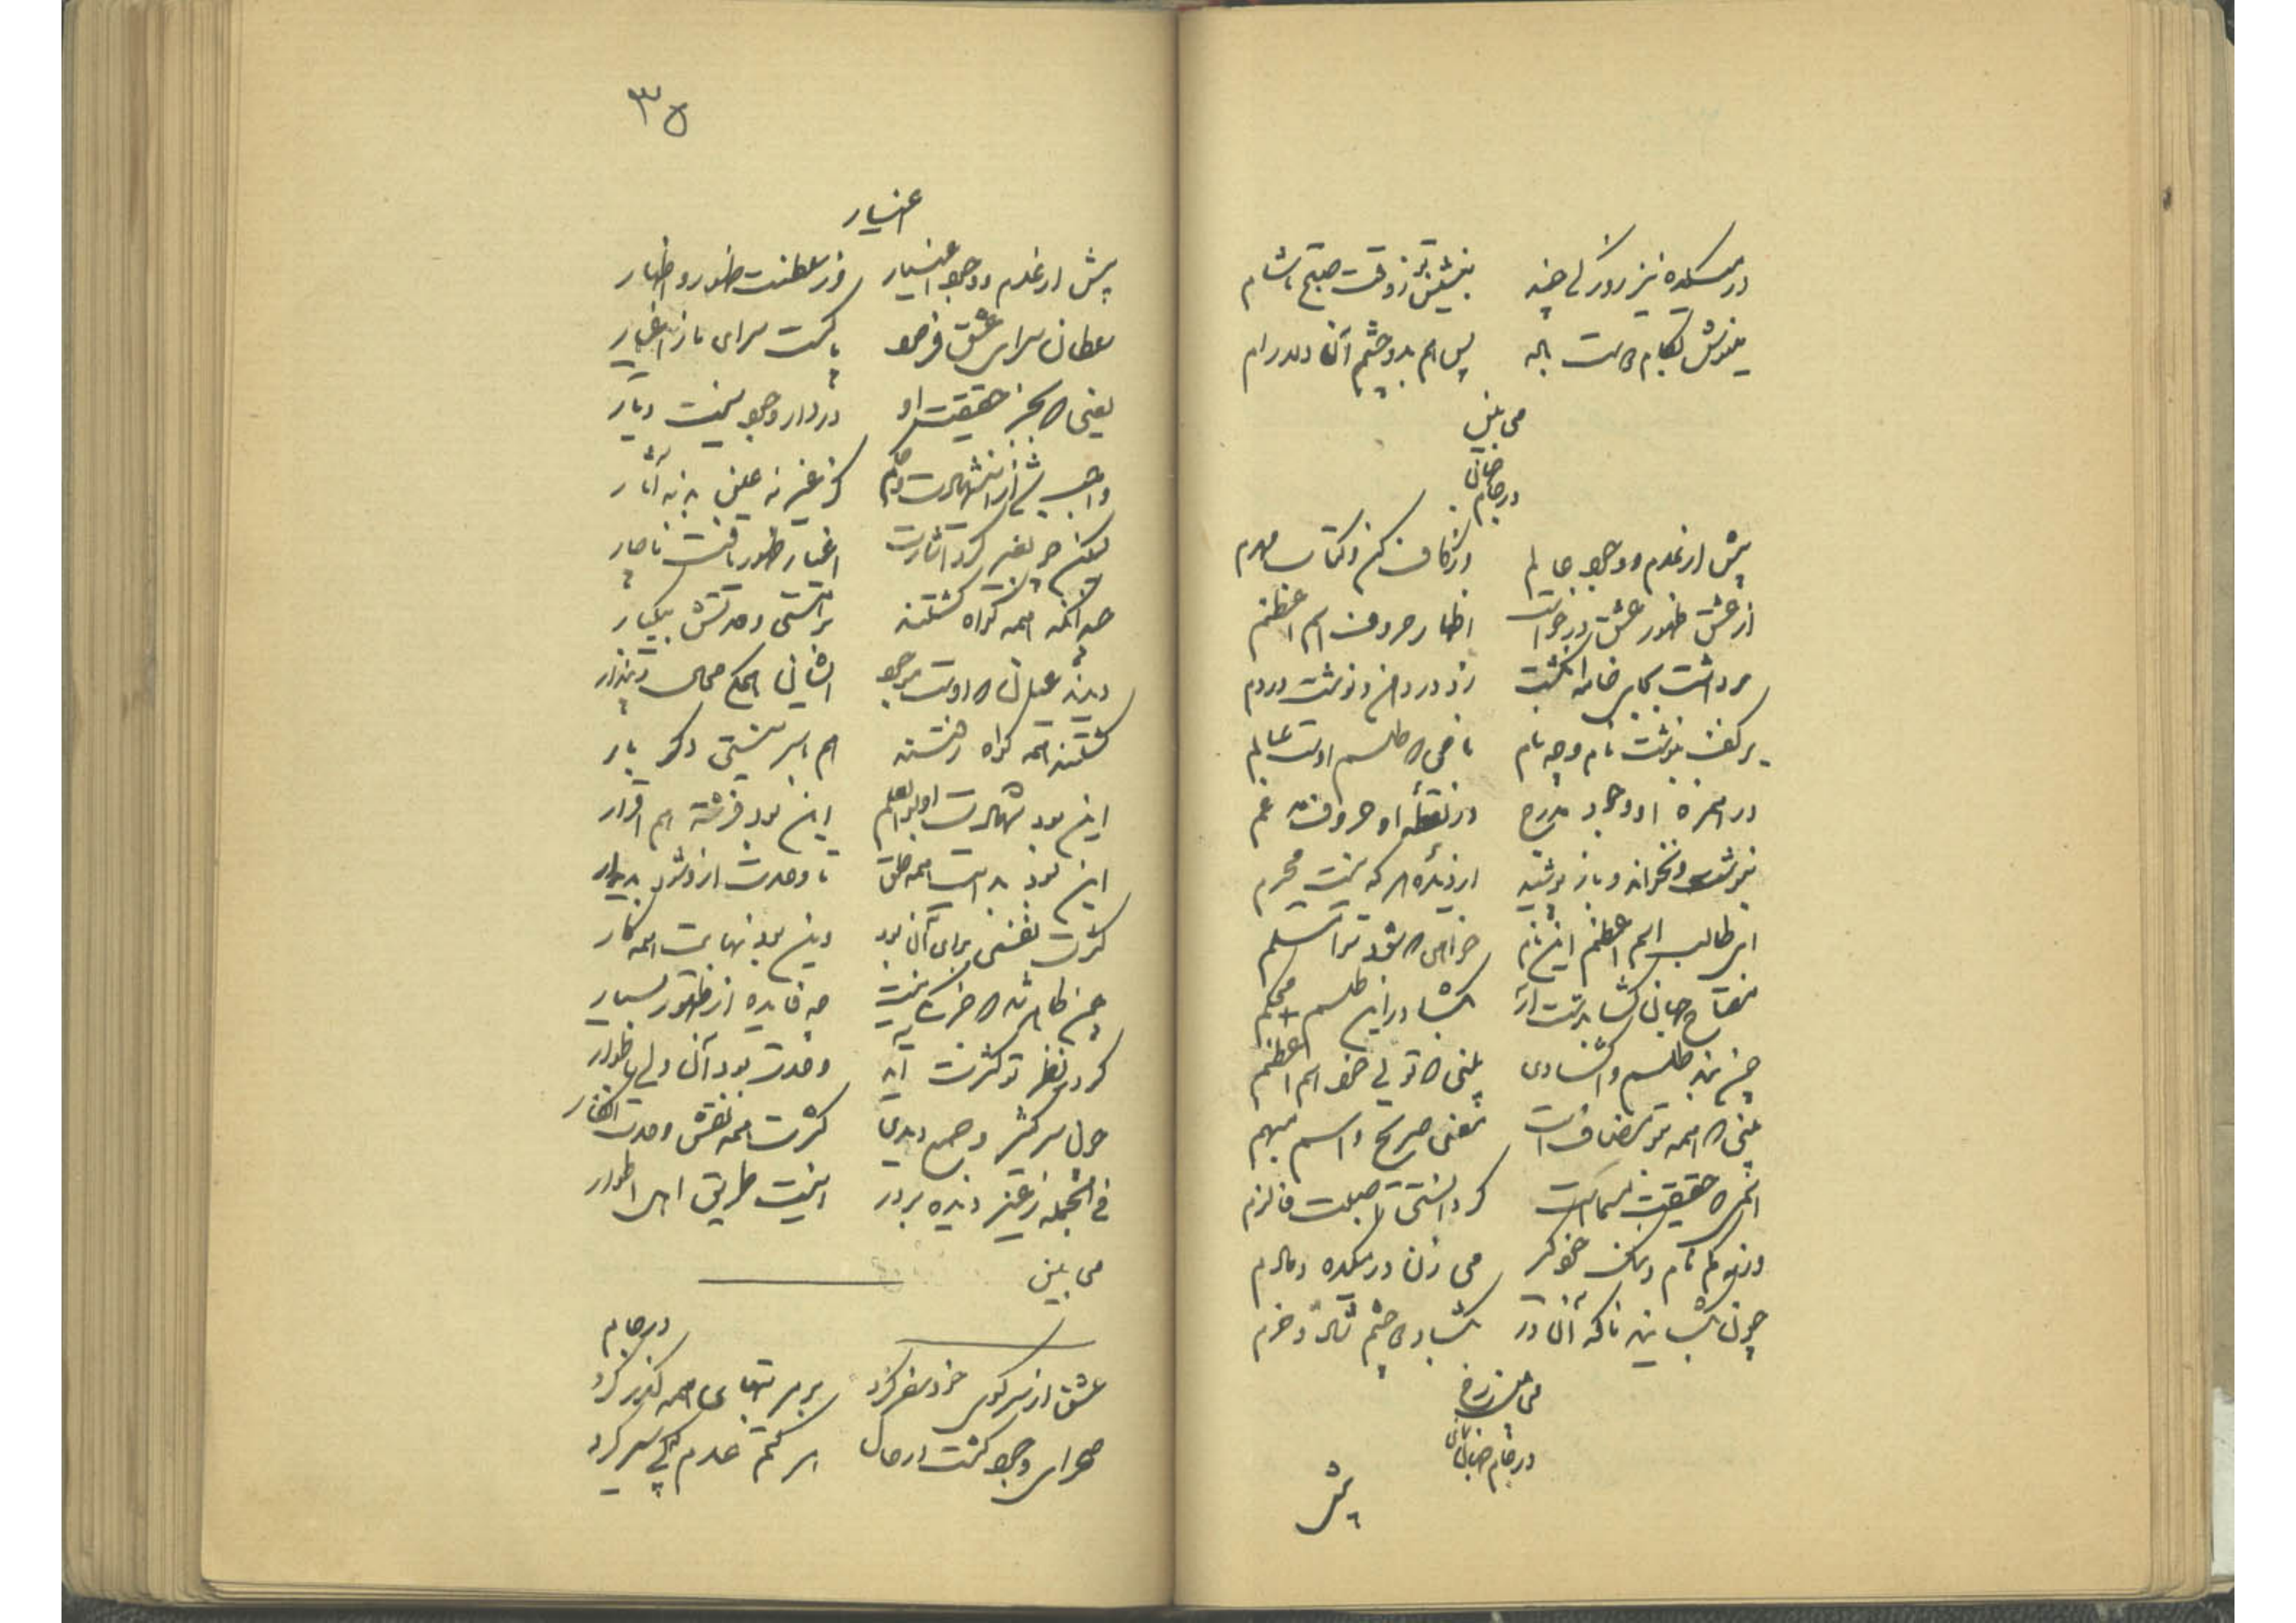 در میکده نیز روزکی چند بنشین ز وقت صبح تا شام
مینوش بکام دوست باده پس هم بدو چشم آن دلارام
می بین
در جام جهان
پیش از عدم و وجود عالم در کاف کن و کتاب مبهم
از عشق ظهور عشق درخواست اظهار حروف اسم اعظم
برداشت بجای خامه انگشت زد در دهن و نوشت در دم
بر کف بنوشت نام و چه نام نامی که طلسم اوست عالم
در همزه او وجود مدرج در نقطه او حروف مدغم
بنوشت و بخواند و باز پوشید از دیده هر که نیست محرم
ای طالب اسم اعظم این نام خواهی که شود ترا مسلم
مفتاح جهان گشا بدست آر بگشا در این طلسم محکم
چون بند طلسم را گشادی بینی که تویی خود اسم اعظم
بینی که همه بتو مضافست معنی صریح و اسم مبهم
حقیقت مسماست
ور نه کم نام و ننگ خود گیر می زن در میکده دمادم
چون بگشایند ناگه آن در بگشای دو چشم شاد و خرم
می بین
در جام جهان
پیش
۳۵
اغیار
پیش از عدم و وجود اغیار در سلطنت ظهور و اظهار
سلطان سرای عشق فرمود پاکست سرای ما ز اغیار
یعنی که بجز حقیقت او در دار وجود نیست دیار
واجب حکم کز غیر نه عین بد نه آثار
لیکن چو بغیر کرد اشارت اغیار ظهور یافت ناچار
چندانکه همه گواه گشتند بر هستی وحدتش بیکبار
دیدند عیان که اوست موجود ایشان همگی محال و پندار
گشتند همه گواه و رفتند هم با سر نیستی دگر بار
این بود شهادت اولوالعلم این بود فرشته هم اقرار
این بود بدایت همه خلق تا وحدت ازو شود پدیدار
کثرت نقشی برای آن بود وین بود نهایت همه کار
چون ظاهر شد که جز یکی نیست چه فایده از ظهور بسیار
گر در نظر تو کثرت آید وحدت بود آن ولی باطوار
چون سر کثیر و جمع دیدی کثرت همه نقش وحدت انگار
فی الجمله ز غیر دیده بردوز اینست طریق اهل اطوار
می بین
در جام
عشق از سر کوی خود سفر کرد بر مرتبهای همه گذر کرد
صحرای وجود گشت در حال هر کتم عدم که پی سپر کرد